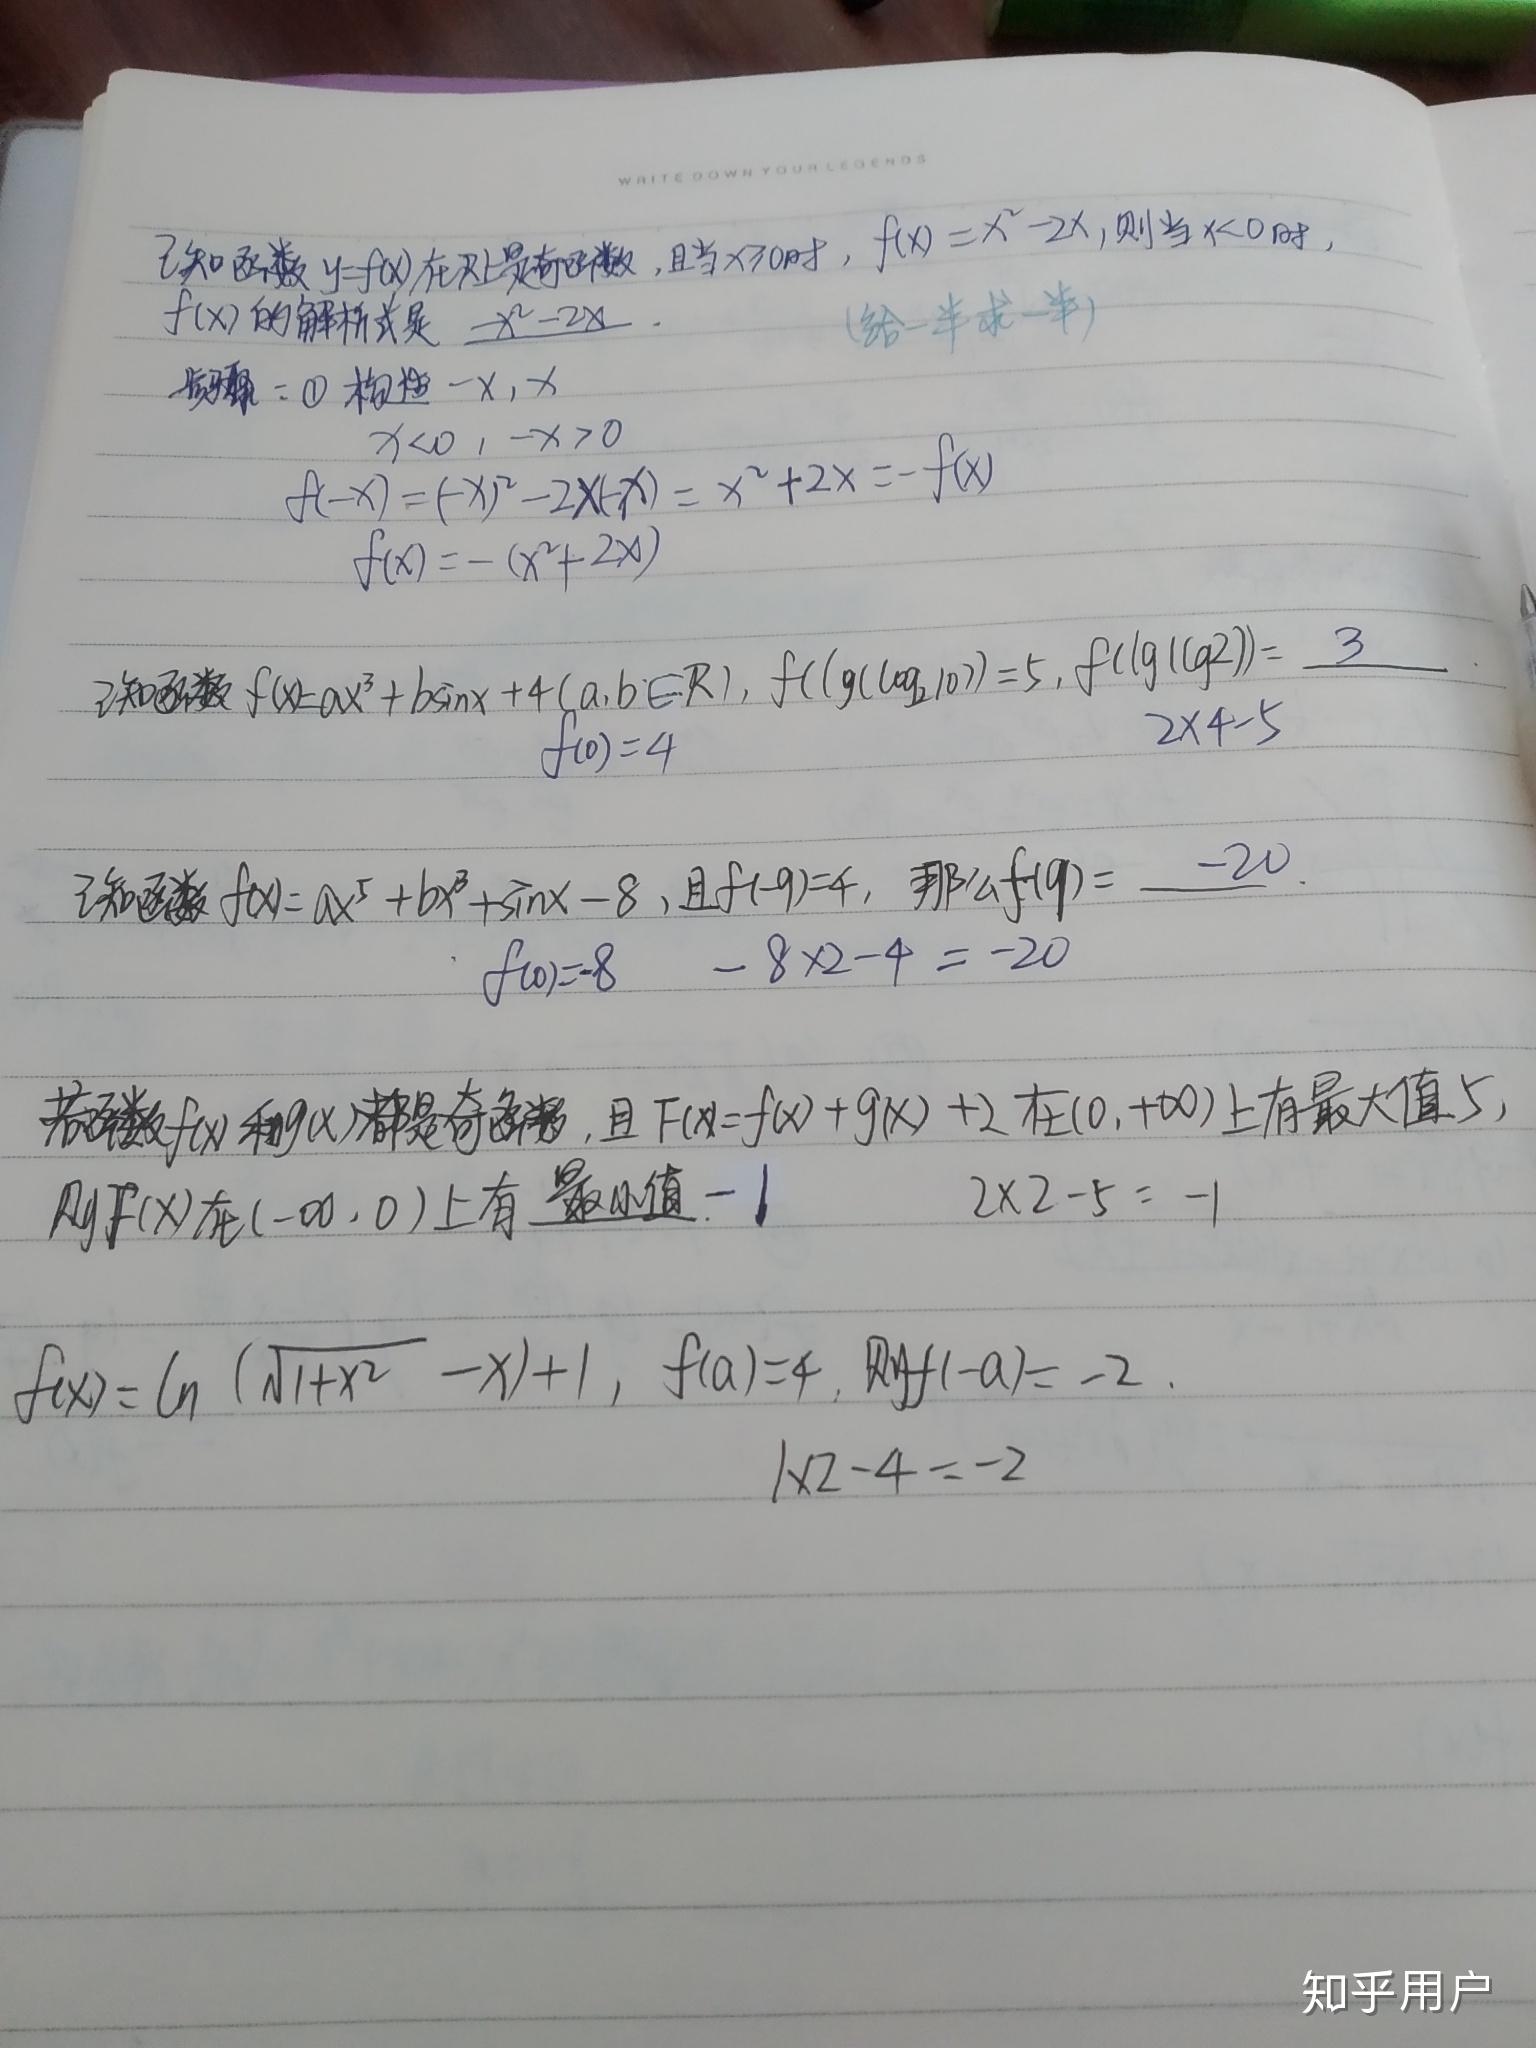 WRITE DOWN YOUR LEGENDS
已知函数y=f(x)在R上是奇函数,且当x≥0时,f(x)=x²-2x,则当x<0时,
f(x)的解析式是 -x²-2x .
(给一半求一半)
步骤:① 构造 -x,x
x<0, -x>0
f(-x)=(-x)²-2×(-x)=x²+2x=-f(x)
f(x)=-(x²+2x)
已知函数f(x)=ax³+bsinx+4(a,b∈R),f(lg(log₂10))=5,f(lg(lg2))= 3 .
f(0)=4
2×4-5
已知函数f(x)=ax⁵+bx³+sinx-8,且f(-9)=4,那么f(9)= -20 .
f(0)=-8 -8×2-4=-20
若函数f(x)和g(x)都是奇函数,且F(x)=f(x)+g(x)+2在(0,+∞)上有最大值5,
则F(x)在(-∞,0)上有 最小值-1 2×2-5=-1
f(x)=ln(√1+x² -x)+1, f(a)=4, 则f(-a)=-2.
1×2-4=-2
知乎用户